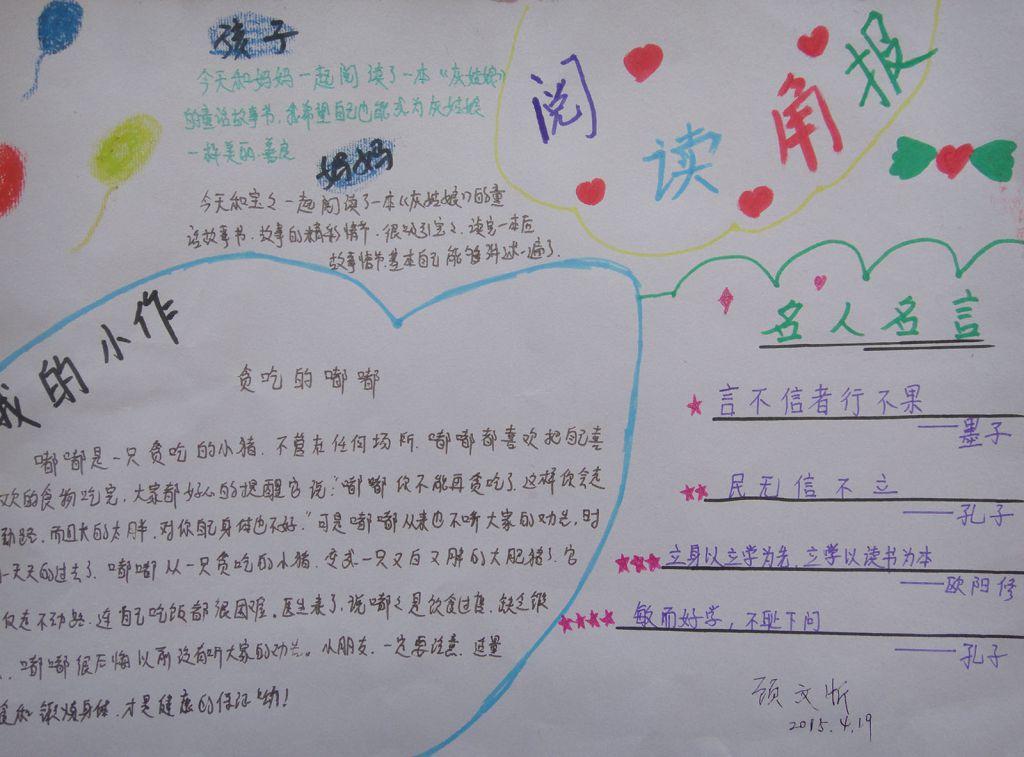 阅读角报
孩子
今天和妈妈一起阅读了一本《灰姑娘》
的童话故事书,我希望自己也能成为灰姑娘
一样美丽、善良
妈妈
今天和宝之一起阅读了一本《灰姑娘》的童
话故事书,故事的精彩情节,很吸引宝之,读完一本后
故事情节基本自己能够讲述一遍了.
我的小作
贪吃的嘟嘟
嘟嘟是一只贪吃的小猪,不管在任何场所,嘟嘟都喜欢把自己喜
欢的食物吃完,大家都好心的提醒它说:"嘟嘟你不能再贪吃了,这样你会走
动路,而且大的太胖,对你的身体也不好."可是嘟嘟从来也不听大家的劝告,时
一天天的过去了,嘟嘟从一只贪吃的小猪,变成一只又白又胖的大肥猪了,它
仅走不动路,连自己吃饭都很困难,医生来了,说嘟之是饮食过度,缺乏锻
,嘟嘟很后悔以前没有听大家的劝告。小朋友,一定要注意,适量
食和锻炼身体,才是健康的保证哟!
名人名言
言不信者行不果
——墨子
民无信不立
——孔子
立身以立学为先,立学以读书为本
——欧阳修
敏而好学,不耻下问
——孔子
顾文昕
2015.4.19